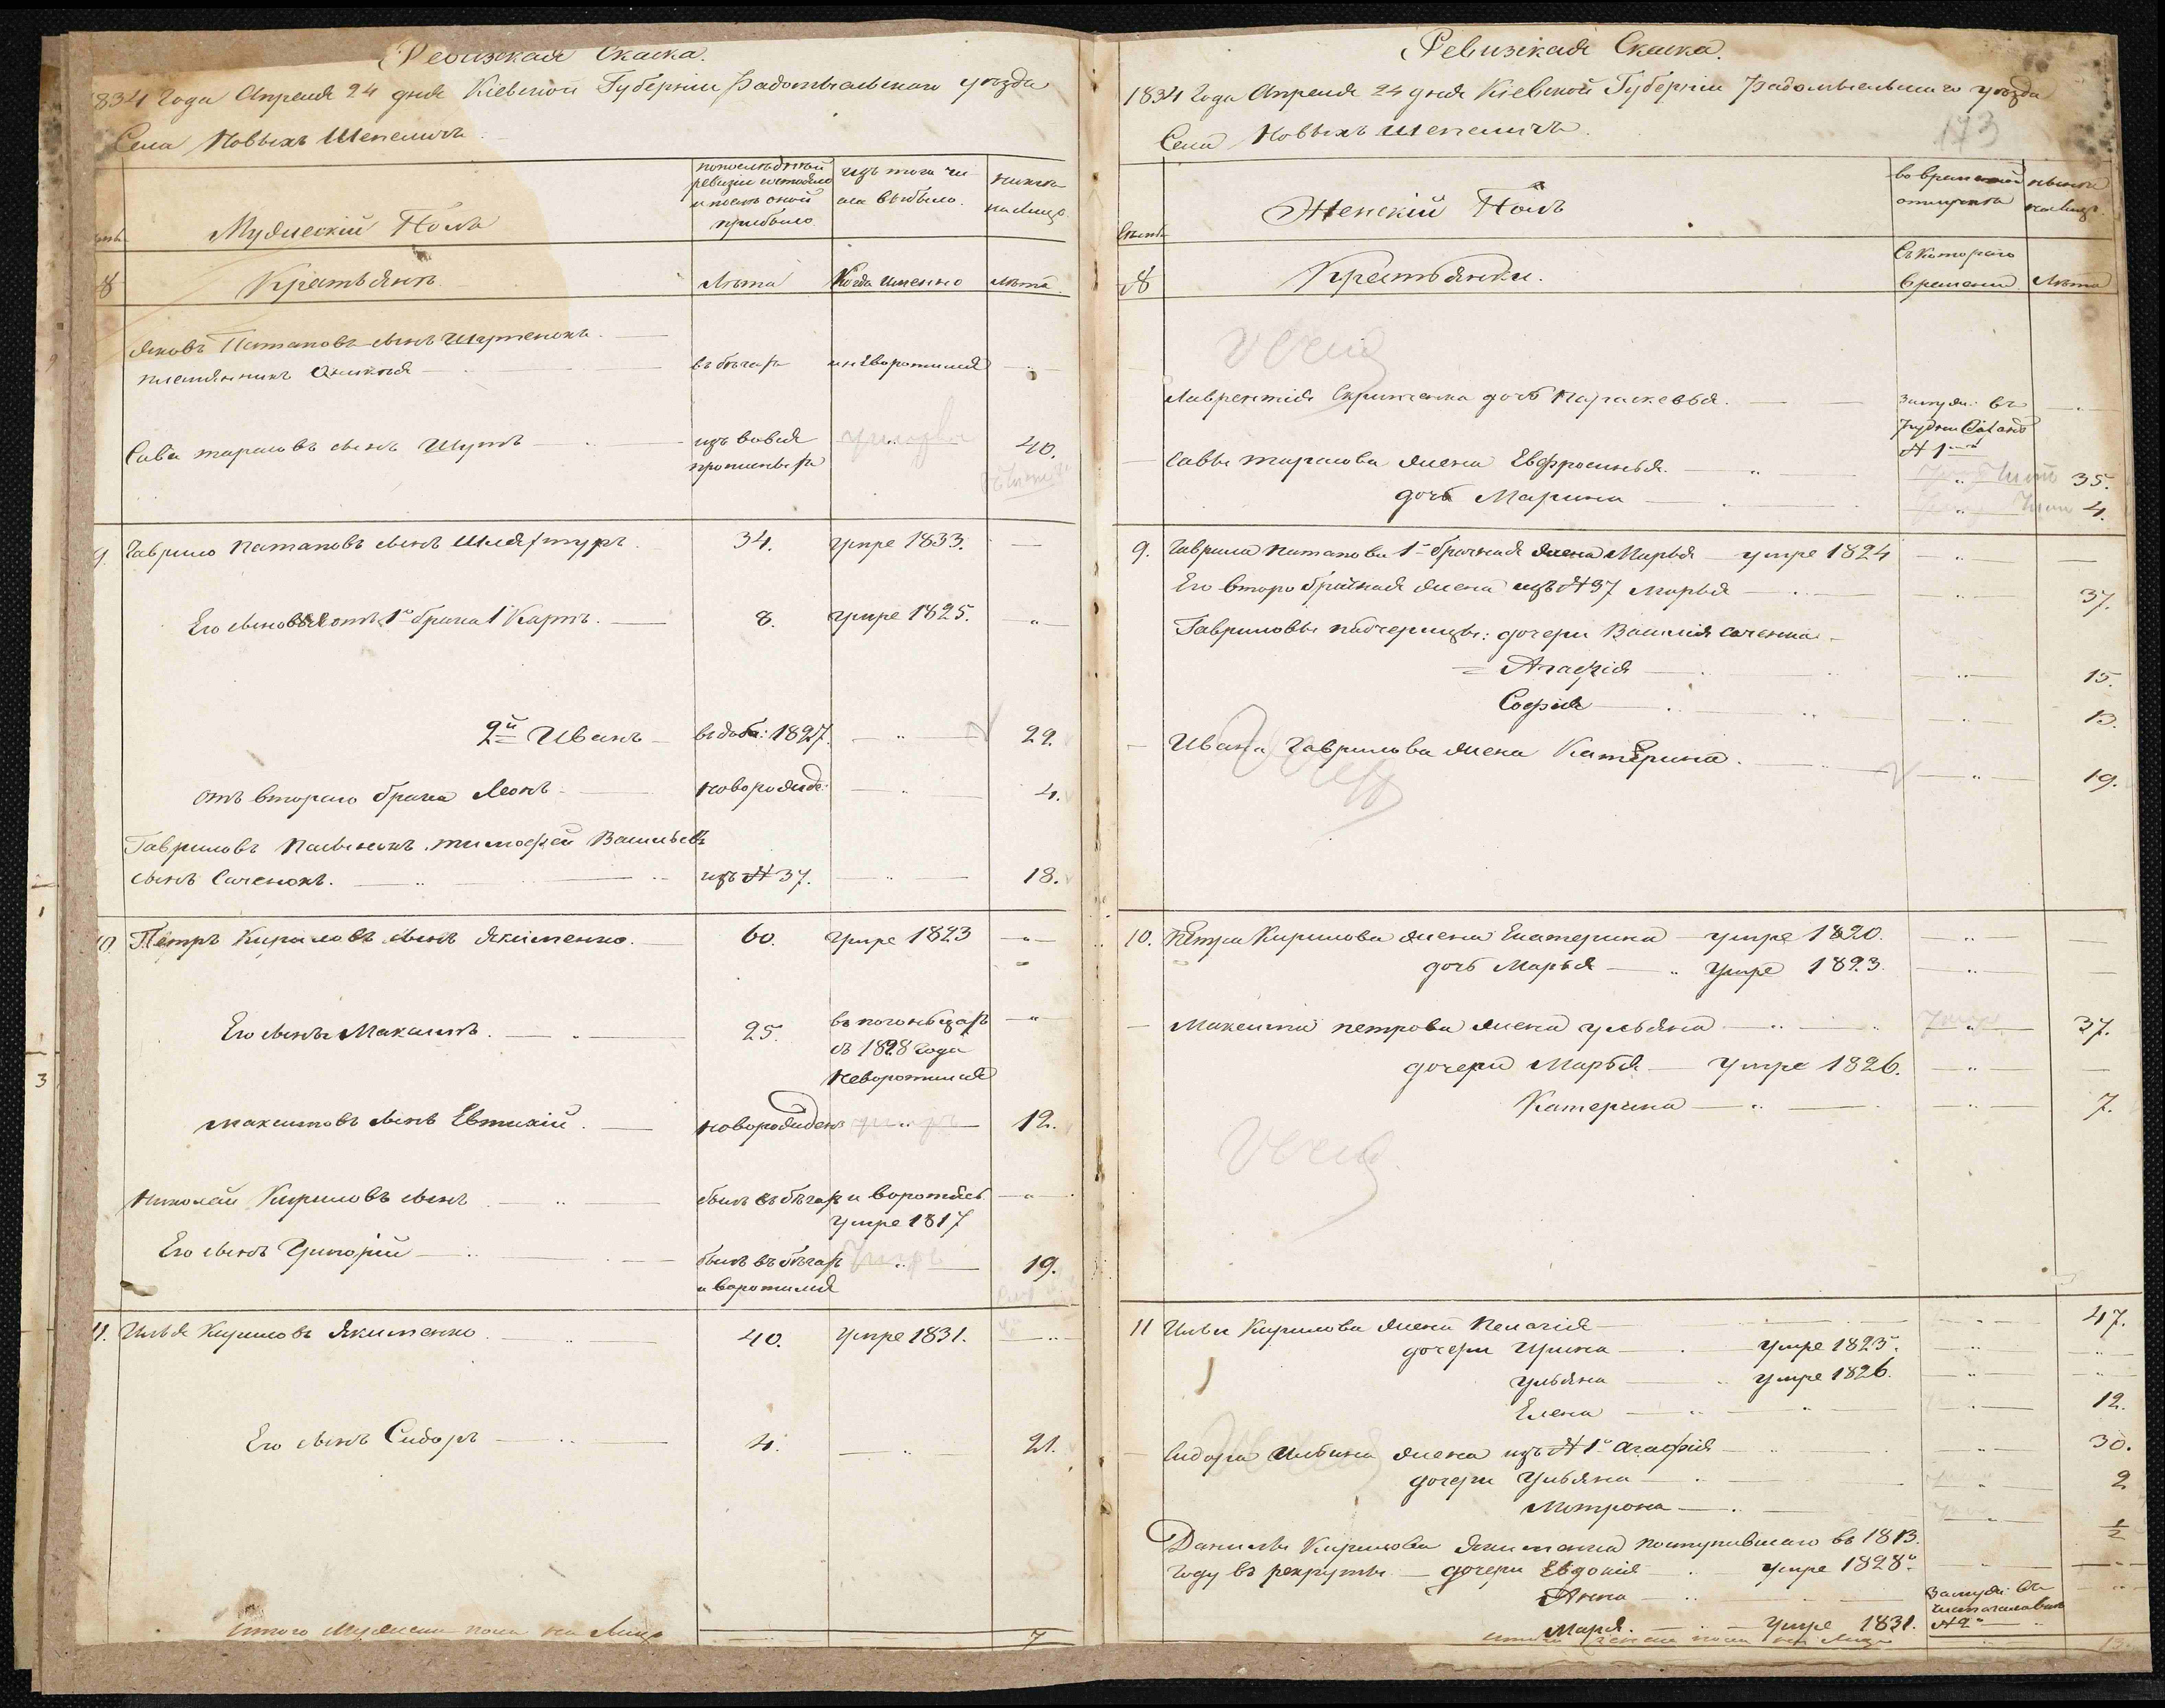 Ревизская Скаска.
1834 года Апреля 24 дня Кіевской Губерніи Радомысльскаго уѣзда
Села Новыхъ Шепеличъ
Мужескій Полъ
По последней ревизіи состояло и послѣ оной прибыло
изъ того числа выбыло.
нынѣ на лицо
8
Крестьянъ.
Лѣта
Когда именно
Лѣта.
Яковъ Потаповъ сынъ
племянникъ
въ бѣгахъ и неворотился
Сава тарасовъ сынъ Шутъ 40.
9 Гаврило Потаповъ сынъ 34. умре 1833. —
Его сыновья отъ 1го брака 1 Карпъ. — 8. умре 1825. "
2й Иванъ — въ доба: 1827. — " — 22.
отъ втораго брака Леонъ — новорожд: — " — 4.
Гавриловъ Пасынокъ тимофей Васильевъ
сынъ Саченокъ. — " — изъ № 37. — " — 18.
10. Петръ Кириловъ сынъ Якименко. 60. Умре 1823 — " —
Его сынъ Максимъ. — " — 25. съ 1828 года неворотился — " —
максимовъ сынъ Евтихій. — новорожденъ — 12.
Николай Кириловъ сынъ — " — былъ въ бѣгахъ и воротясь умре 1817 — " —
Его сынъ Григорій — " — былъ въ бѣгахъ и воротился — " — 19.
11. Илья Кириловъ Якименко — " — 40. умре 1831. — " —
Его сынъ Сидоръ — " — 4. — " — 21.
Итого мужеска пола на лицо 7
Ревизская Скаска.
1834 года Апреля 24 дня Кіевской Губерніи Радомысльскаго уѣзда
173
Села Новыхъ Шепеличъ.
Женскій Полъ
во временной отлучкѣ
нынѣ на лицо.
8
Крестьянки.
Съ котораго времени
Лѣта
Лаврентія дочь Параскевья. — замуж: въ
№ 1
Савы тарасова жена Евфросинья. — " — 35.
дочь Марина — 4.
9. Гаврила Потапова 1 брачная жена Марья — умре 1824 — " —
Его второбрачная жена изъ № 37 марья — " — 37.
Гавриловы падчерицы: дочери Василія Саченка —
Агафія — " — 15.
Софія — " — 13.
Ивана Гаврилова жена Катерина. — " — 19.
10. Петра Кирилова жена Екатерина — умре 1820. — " —
дочь Марья — " умре 1823. — " —
Максима петрова жена ульяна — " — 37.
дочери Марья — Умре 1826. — " —
Катерина — " — 7.
11 Ильи Кирилова жена Пелагія — " — 47.
дочери Ирина — умре 1825. — " —
Ульяна — умре 1826. — " —
Елена — " — 12.
Сидора Ильина жена изъ № 1 Агафія — " — 30.
дочери Ульяна — " — 2
Мотрона — " — 1/2
Данилы Кирилова Якименка поступившаго въ 1813.
году въ рекруты — дочери Евдокія — умре 1828. — " —
Анна — " — замуж: въ
№ 2
Марья. — умре 1831.
Итого женска пола на лицо